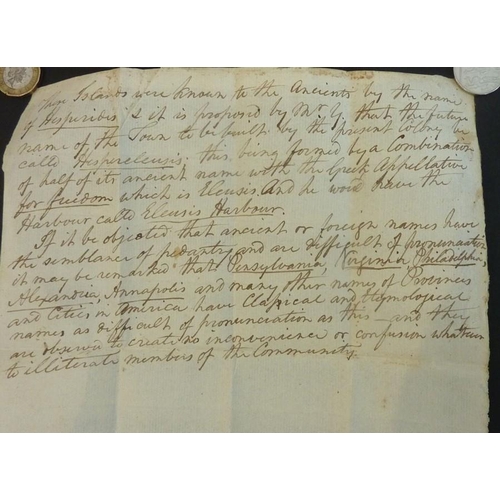 These Islands were known to the Ancients by the name
of Hesperibis, & it is proposed by Mr Y. that the future
name of the Town to be built by the present Colony be
called Hespereleusis; this being formed by a Combination
of half of its ancient name with the Greek Appellative
for freedom which is Eleusis. And he woud have the
Harbour called Eleusis Harbour.
If it be objected that ancient or foreign names have
the semblance of pedantry and are difficult of pronunciation
it may be remarked that Pensylvania, Virginia Philadelphia,
Alexandria, Annapolis and many other names of Provinces
and Cities in America have Classical and Etymological
names as difficult of pronunciation as this — and they
are observd to create no inconvenience or confusion whatever
to illiterate members of the Community.